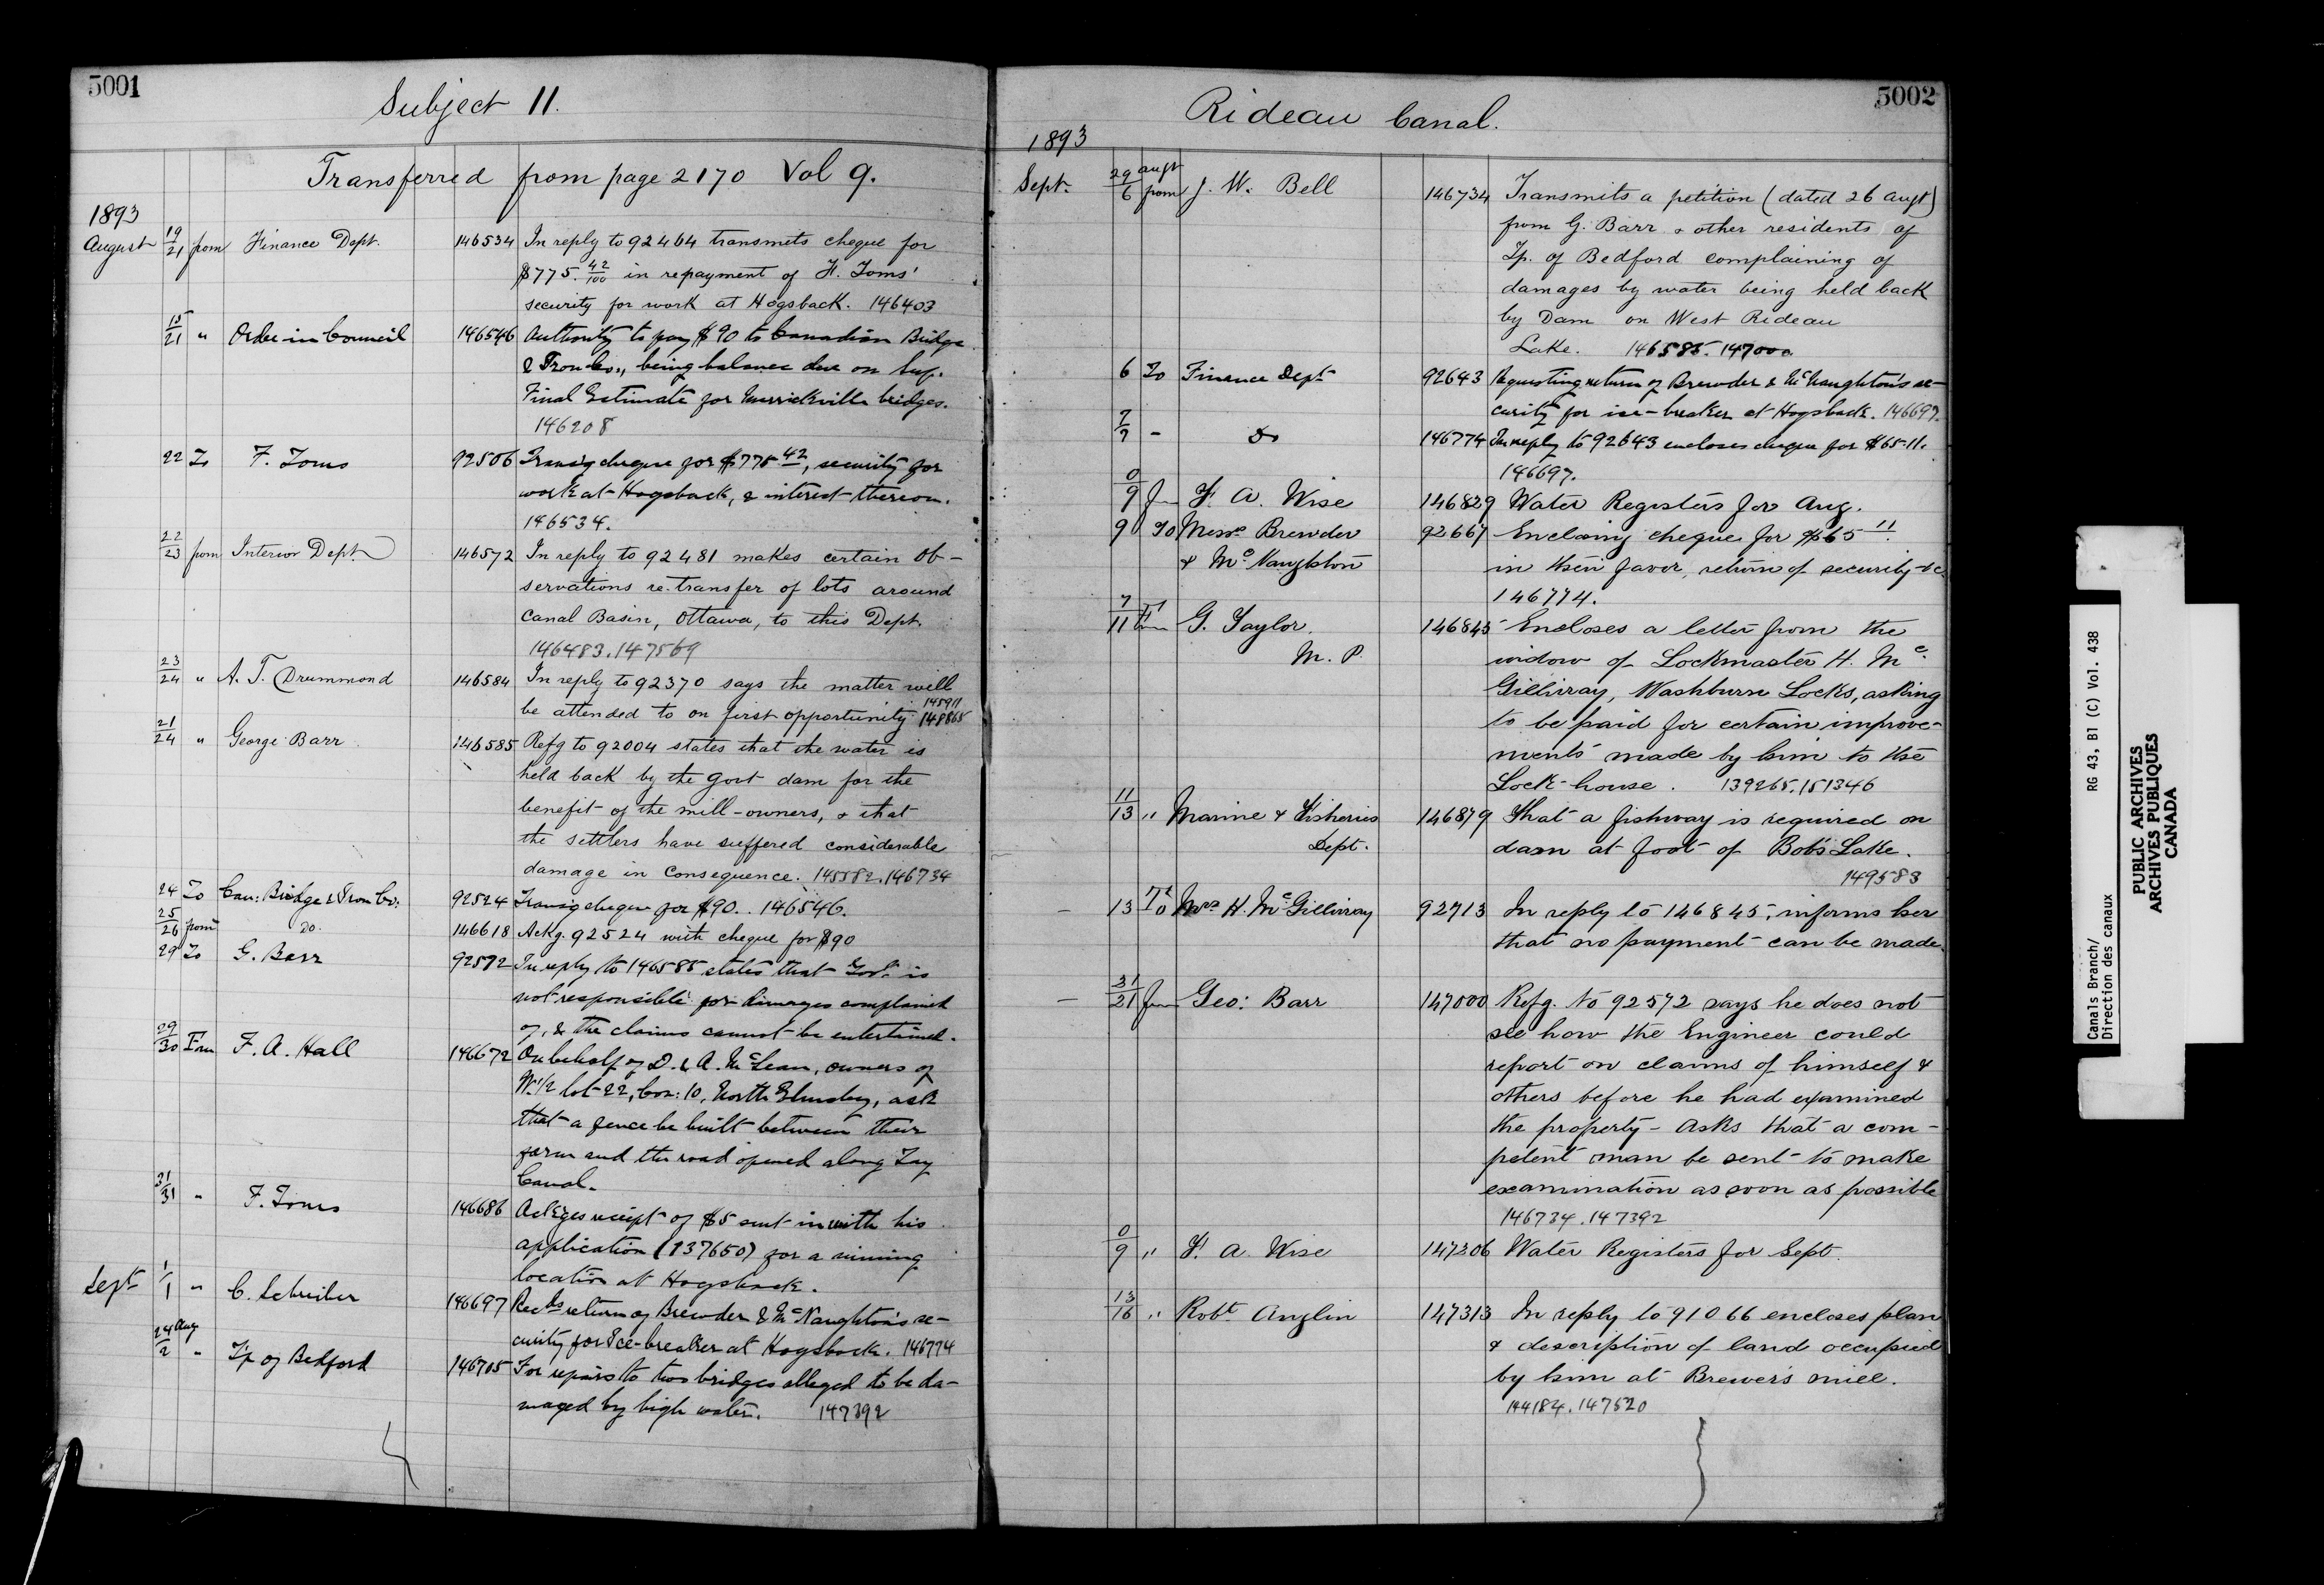 5001
Subject 11.
Transferred from page 2170 Vol 9.
1893
August 19/21 from Finance Dept. 146534 In reply to 92464 transmits cheque for
$775.42/100 in repayment of F. Toms'
security for work at Hogsback. 146403
15/21 " Order in Council 146546 Authority to pay $90 to Canadian Bridge
& Iron Co., being balance due on Sup.
Final Estimate for Merrickville bridges.
146208
22 To F. Toms 92506 Transg cheque for $775 42, security for
work at Hogsback, & interest thereon.
146534.
22/23 from Interior Dept. 146572 In reply to 92481 makes certain ob-
servations re transfer of lots around
Canal Basin, Ottawa, to this Dept.
146483.147569
23/24 " A. T. Drummond 146584 In reply to 92370 says the matter will
be attended to on first opportunity 145911 148865
21/24 " George Barr 146585 Refg to 92004 states that the water is
held back by the Govt dam for the
benefit of the mill-owners, & that
the settlers have suffered considerable
damage in consequence. 145582.146734
24 To Can: Bridge & Iron Co: 92524 Transg cheque for $90.. 146546.
25/26 from do. 146618 Ackg. 92524 with cheque for $90
29 To G. Barr 92572 In reply to 146585 states that Govt. is
not responsible for damages complained
of, & the claims cannot be entertained.
29/30 From F. A. Hall 146672 On behalf of D. & A. McLean, owners of
W. 1/2 lot 22, Con: 10, North Elmsley, ask
that a fence be built between their
farm and the road opened along Tay
Canal.
31/31 " F. Toms 146686 Ackges receipt of $5 sent in with his
application (137650) for a mining
location at Hogsback.
Sept 1/1 " C. Schreiber 146697 Recds return of Brewder & McNaughton's se-
curity for Ice-breaker at Hogsback. 146774
24 Aug/2 " Tp of Bedford 146705 For repairs to two bridges alleged to be da-
maged by high water. 147392
5002
Rideau Canal.
1893
Sept. 29 Augt/6 from J. W. Bell 146734 Transmits a petition (dated 26 Augt)
from G. Barr & other residents of
Tp. of Bedford complaining of
damages by water being held back
by Dam on West Rideau
Lake. 146585.147000
6 To Finance Dept 92643 Requesting return of Brewder & McNaughton's se-
curity for ice-breaker at Hogsback. 146697.
7/7 - Do 146774 In reply to 92643 encloses cheque for $65.11.
146697.
0/9 from F. A. Wise 146829 Water Registers for Aug.
9 To Messrs Brewder 92667 Enclosing cheque for $65 11.
& McNaughton in their favor, return of security &c.
146774.
7/11 from G. Taylor M. P. 146845 Encloses a letter from the
widow of Lockmaster H. Mc
Gillivray, Washburn Locks, asking
to be paid for certain improve-
ments made by him to the
Lock-house. 139265.151346
11/13 " Marine & Fisheries 146879 That a fishway is required on
Dept. dam at foot of Bob's Lake.
149583
13 To Mrs H. McGillivray 92713 In reply to 146845, informs her
that no payment can be made.
21/21 from Geo: Barr 147000 Refg. to 92572 says he does not
see how the Engineer could
report on claims of himself &
others before he had examined
the property - Asks that a com-
petent man be sent to make
examination as soon as possible
146734.147392
0/9 " F. A. Wise 147206 Water Registers for Sept.
13/16 " Robt Anglin 147313 In reply to 91066 encloses plan
& description of land occupied
by him at Brewer's mill.
144184.147520
Canals Branch/
Direction des canaux
RG 43, B1 (C) Vol. 438
PUBLIC ARCHIVES
ARCHIVES PUBLIQUES
CANADA